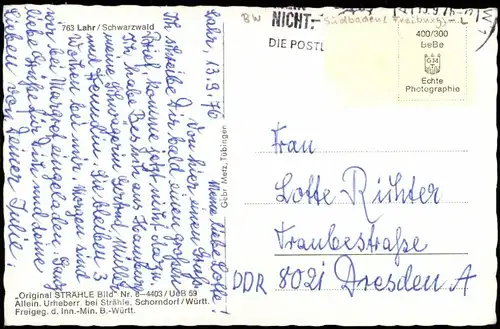 763 Lahr / Schwarzwald
Lahr, 13.9.76
Meine liebe Lotte!
Von hier einen Gruß.
Ich schreibe Dir bald einen großen
Brief, komme jetzt nicht dazu.
Ich habe Besuch aus Hamburg
meine Schwägerin Gertrud Müller
und Freundin. Sie bleiben 3
Wochen bei mir. Morgen sind
wir bei Margot eingeladen. Ganz
liebe Grüße für Dich und deine
Lieben von Deiner Julie!
"Original STRÄHLE Bild" Nr. 6-4403 / UeB 59
Allein. Urheberr. bei Strähle. Schorndorf / Württ.
Freigeg. d. Inn.-Min. B.-Württ.
Gebr. Metz, Tübingen
NICHT:
BW Südbaden (Freiburg)
DIE POSTL
400/300
BeBe
Echte
Photographie
Frau
Lotte Richter
Traubestraße
DDR 8021 Dresden A